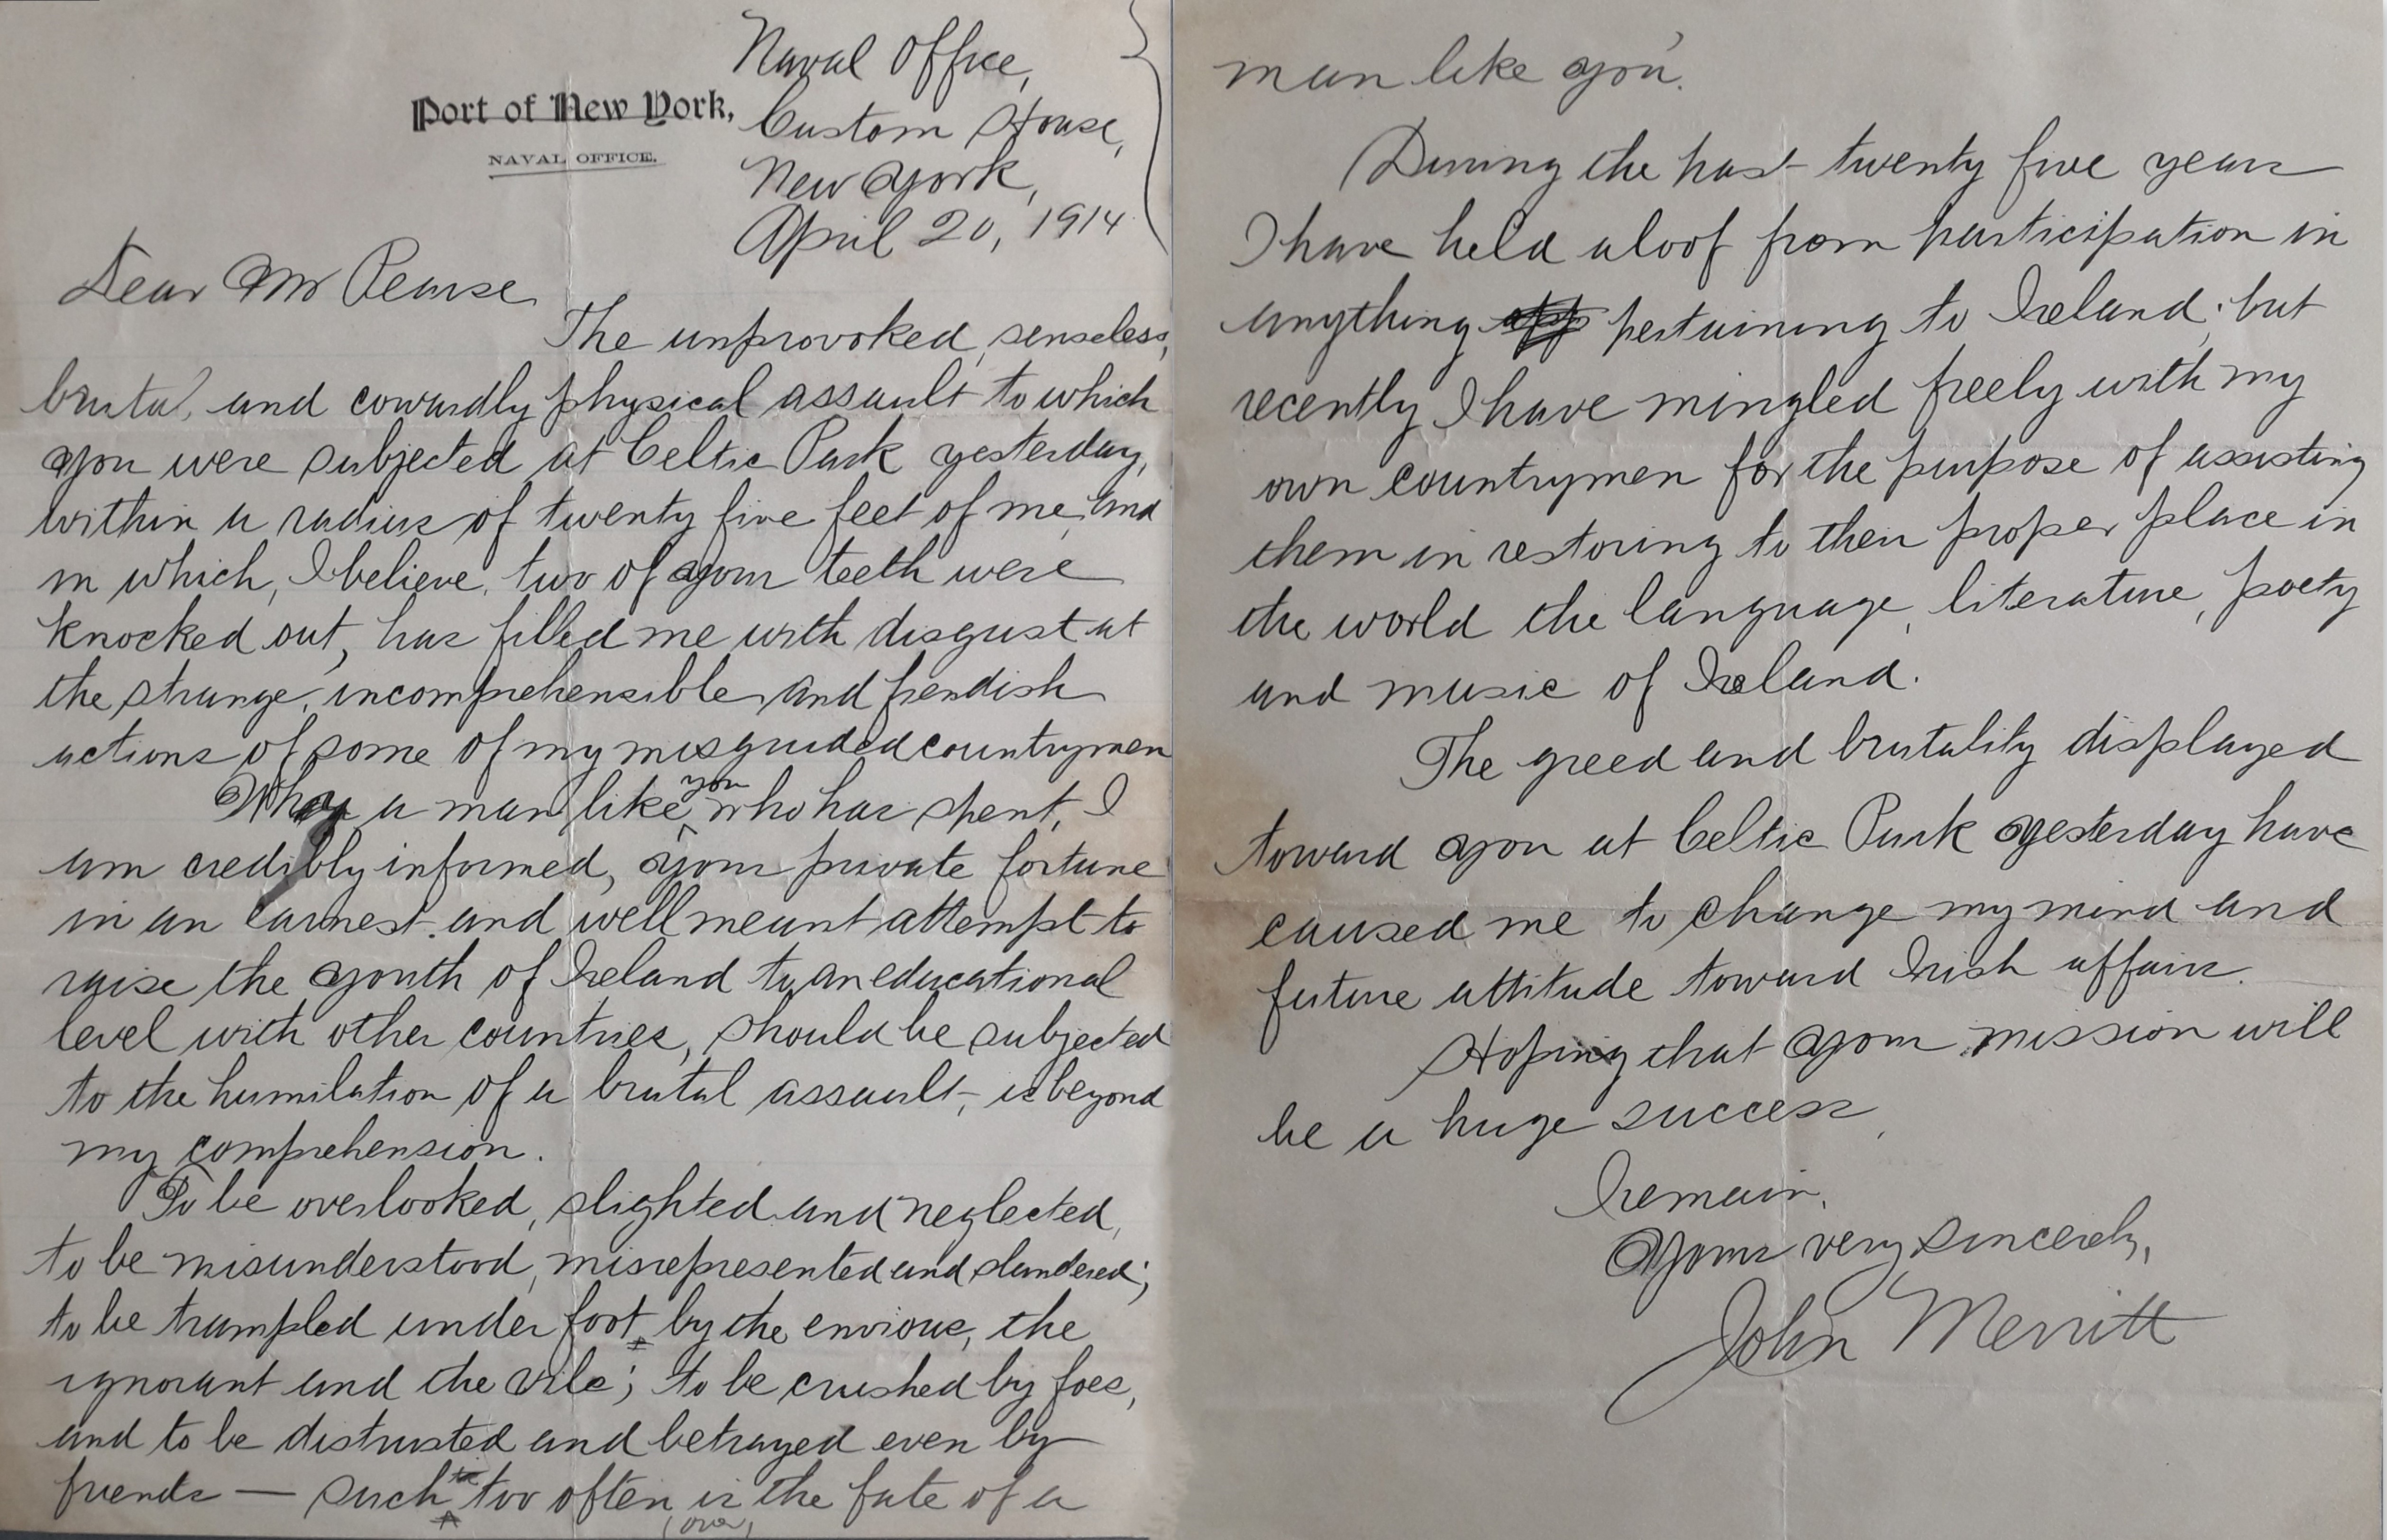 Port of New York,
NAVAL OFFICE.
Naval Office,
Custom House,
New York,
April 20, 1914
Dear Mr Pearse
The unprovoked, senseless,
brutal, and cowardly physical assault to which
you were subjected at Celtic Park yesterday,
within a radius of twenty five feet of me, and
in which, I believe, two of your teeth were
knocked out, has filled me with disgust at
the strange, incomprehensible and fiendish
actions of some of my misguided countrymen
Why a man like you who has spent, I
am credibly informed, your private fortune
in an earnest and well meant attempt to
raise the youth of Ireland to an educational
level with other countries, should be subjected
to the humilation of a brutal assault, is beyond
my comprehension.
To be overlooked, slighted and neglected,
to be misunderstood, misrepresented and slandered;
to be trampled under foot by the envious, the
ignorant and the vile; to be crushed by foes,
and to be distrusted and betrayed even by
friends — such too often is the fate of a
(over)
man like you.
During the past twenty five years
I have held aloof from participation in
anything pertaining to Ireland; but
recently I have mingled freely with my
own countrymen for the purpose of assisting
them in restoring to their proper place in
the world the language, literature, poety
and music of Ireland.
The greed and brutality displayed
toward you at Celtic Park yesterday have
caused me to change my mind and
future attitude toward Irish affairs.
Hoping that your mission will
be a huge success,
I remain,
Yours very sincerely,
John Merritt